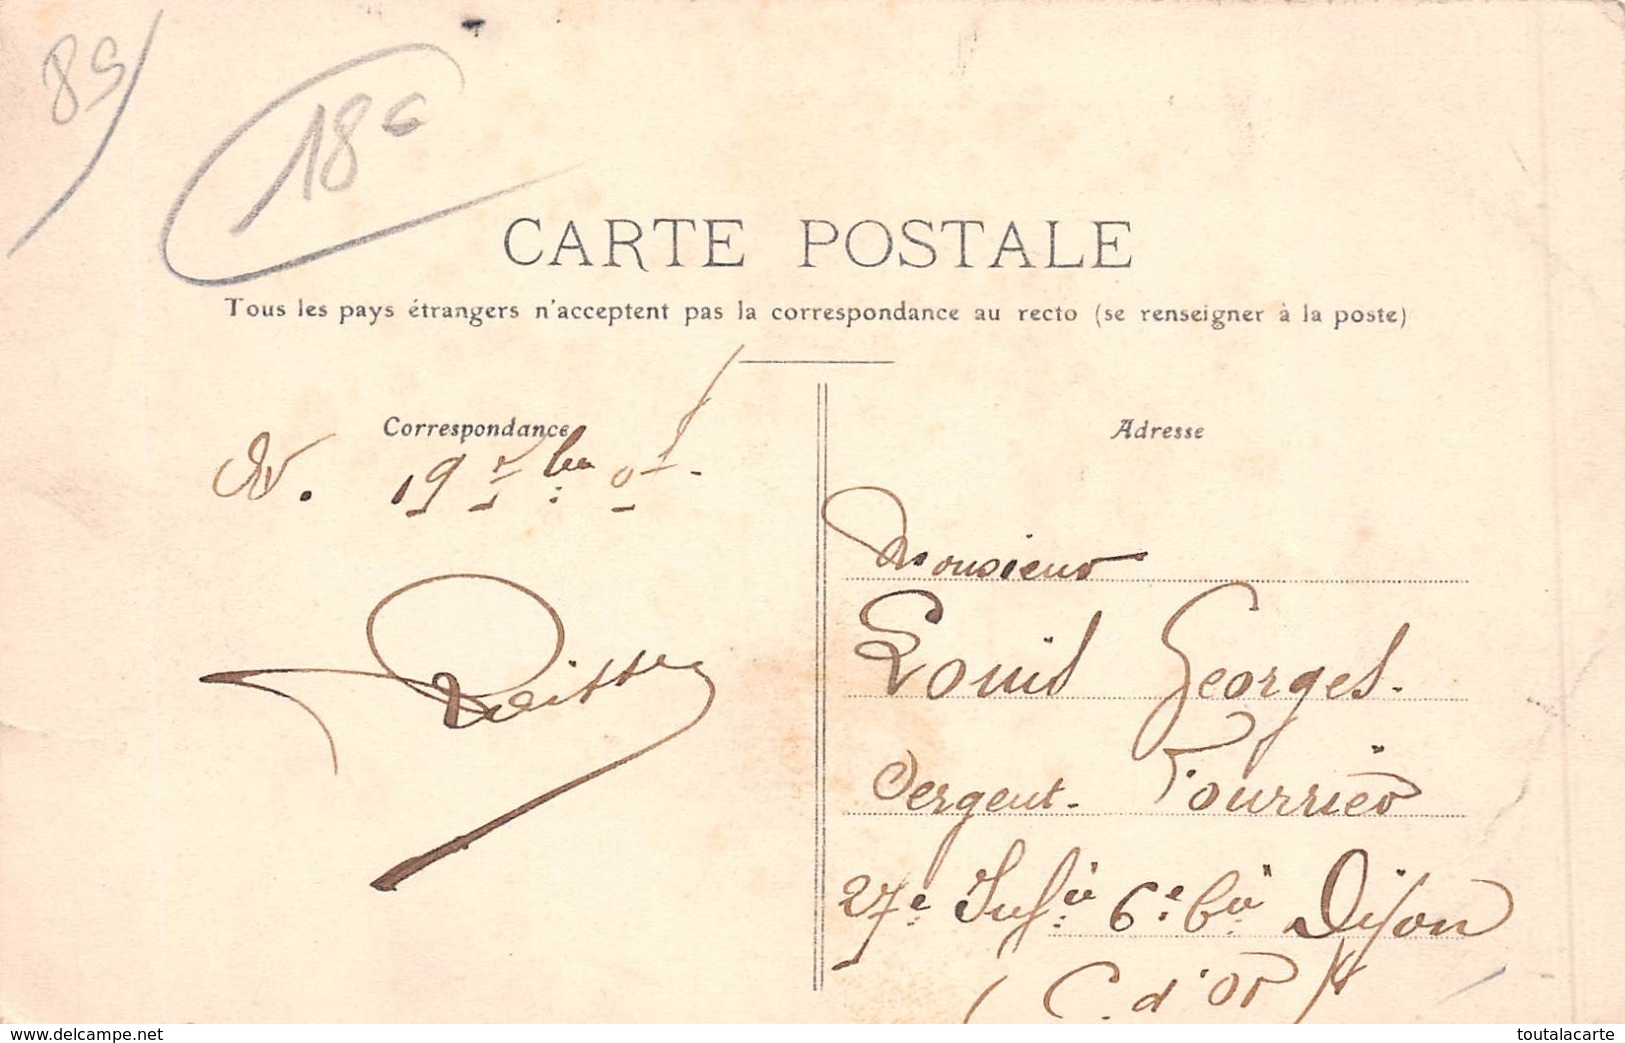 89
18€
CARTE POSTALE
Tous les pays étrangers n'acceptent pas la correspondance au recto (se renseigner à la poste)
Correspondance
Adresse
19 7bre 07.
Monsieur
Louis Georges.
Sergent-Fourrier
27e Inf.ie 6e Cie Dijon
(C. d'Or)
www.delcampe.net
toutalacarte